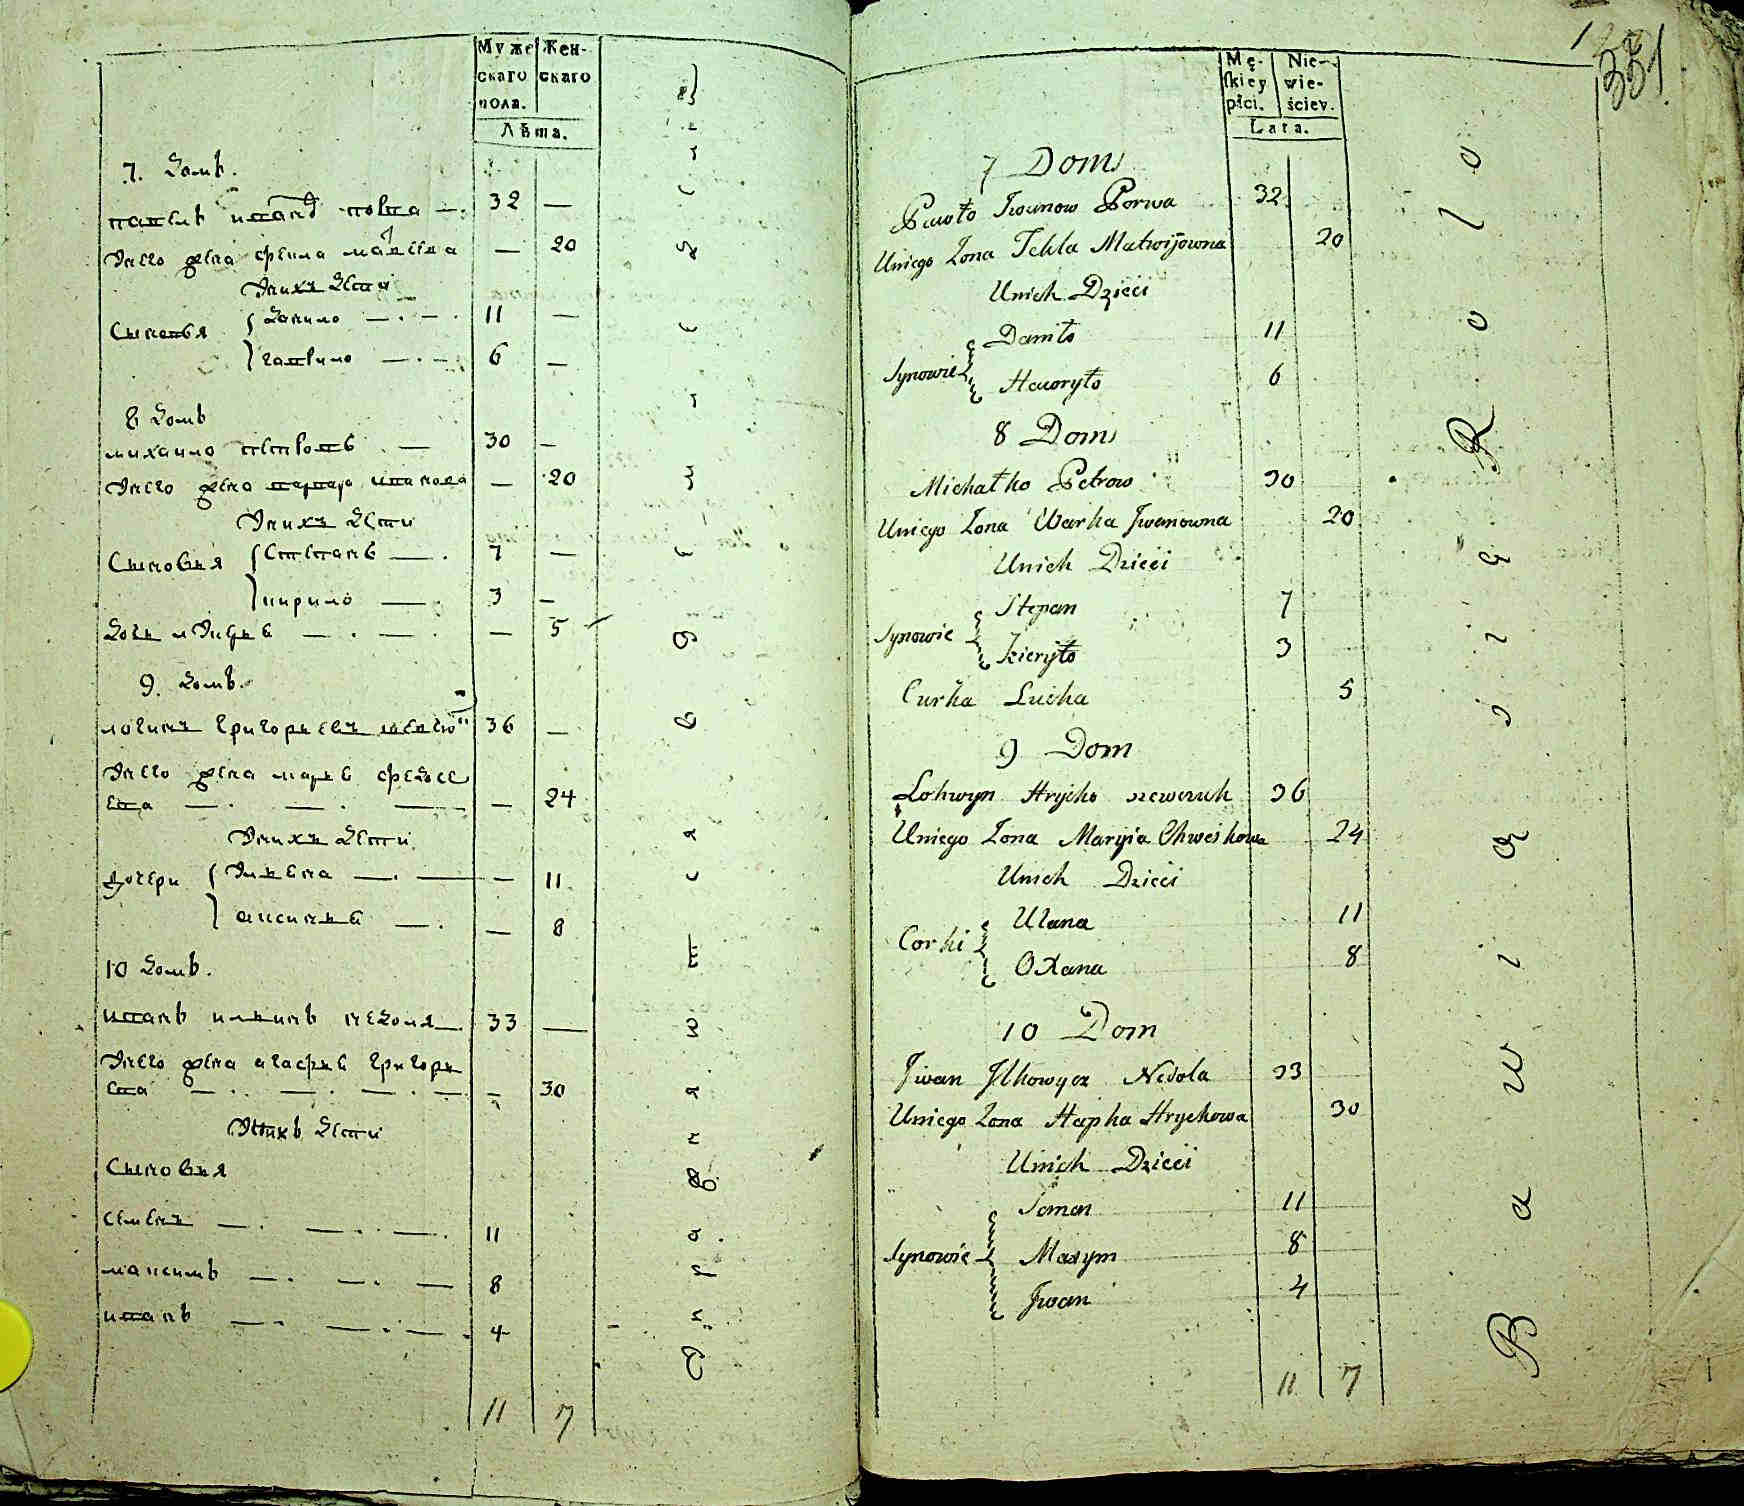 Муже Жен-
скаго скаго
пола.
Лѣта.
7. Домъ.
павелъ ивановъ 32 —
Унего жена — 20
Унихъ дети
Сыновья данило 11 —
гаврило 6 —
8 домъ
михаило петровъ 30 —
Унего жена иванова — 20
Унихъ дети
Сыновья степанъ 7 —
кирило 3 —
— 5
9. домъ.
логинъ григорьевъ 36 —
Унего жена марья федосе
ева — 24
Унихъ дети
дочери — 11
аксинья — 8
10 домъ.
иванъ илькинъ недоля 33 —
Унего жена агафья григорь
ева — 30
Унихъ дети
Сыновья
семенъ 11
максимъ 8
иванъ 4
11 7
351
Mę- Nie-
skiey wie-
płci. ściey.
Lata.
7 Dom
Pawło Iwanow Porwa 32
Uniego Zona Tekla Matwijowna 20
Unich Dzieci
Synowie Daniło 11
Hawryło 6
8 Dom
Michałko Petrow 30
Uniego Zona Warka Iwanowna 20
Unich Dzieci
Synowie Stepan 7
Kieryło 3
Curka Lucka 5
9 Dom
Lohwyn Hrycko 36
Uniego Zona Maryia Chweskowa 24
Unich Dzieci
Corki Ulana 11
Oxana 8
10 Dom
Iwan Ilkowycz Nedola 33
Uniego Zona Hapka Hryckowa 30
Unich Dzieci
Synowie Seman 11
Maxym 8
Iwan 4
11 7